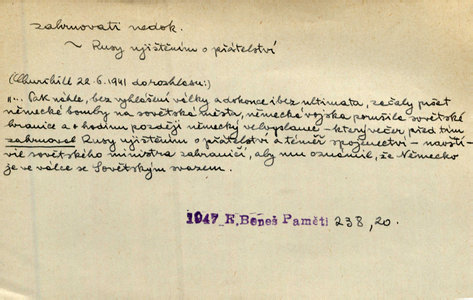 zahrnovati nedok.
~ Rusy ujištěním o přátelství
(Churchill 22.6.1941 do rozhlasu:)
"... Pak náhle, bez vyhlášení války a dokonce i bez ultimata, začaly pršet
německé bomby na sovětské města, německá vojska porušila sovětské
hranice a o hodinu později německý velvyslanec – který večer před tím
zahrnoval Rusy ujištěním o přátelství a téměř spojenectví – navští-
vil sovětského ministra zahraničí, aby mu oznámil, že Německo
je ve válce se Sovětským svazem.
1947 E. Beneš Paměti 238, 20.